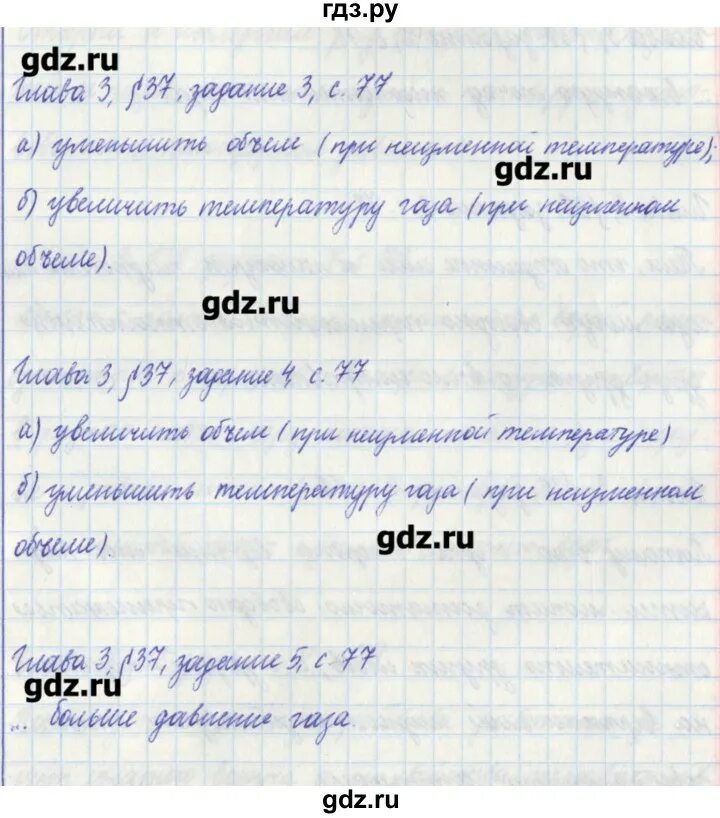 гдз.ру
gdz.ru
Глава 3, §37, задание 3, с. 77
а) уменьшить объем (при неизменной температуре);
gdz.ru
б) увеличить температуру газа (при неизменном
объеме).
gdz.ru
Глава 3, §37, задание 4, с. 77
а) увеличить объем (при неизменной температуре)
б) уменьшить температуру газа (при неизменном
объеме)
gdz.ru
Глава 3, §37, задание 5, с. 77
gdz.ru
... больше давление газа.
gdz.ru